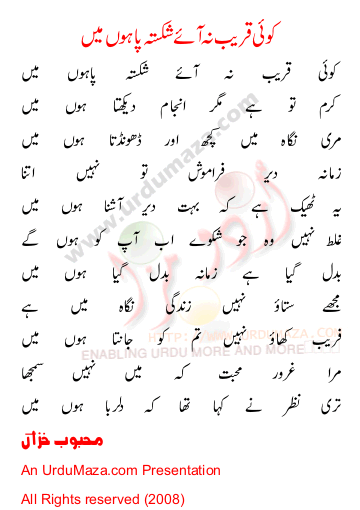 کوئی قریب نہ آئے شکستہ پا ہوں میں
کوئی قریب نہ آئے شکستہ پاہوں میں
کرم تو ہے مگر انجام دیکھتا ہوں میں
مری نگاہ میں کچھ اور ڈھونڈتا ہوں میں
زمانہ دیر فراموش تو نہیں اتنا
یہ ٹھیک ہے کہ بہت دیر آشنا ہوں میں
غلط نہیں وہ جو شکوے اب آپ کو ہوں گے
بدل گیا ہے زمانہ بدل گیا ہوں میں
مجھے ستاؤ نہیں زندگی نگاہ میں ہے
فریب کھاؤ نہیں تم کو جانتا ہوں میں
مرا غرور محبت کہ میں نہیں سمجھا
تری نظر نے کہا تھا کہ دلربا ہوں میں
محبوب خزاں
An UrduMaza.com Presentation
All Rights reserved (2008)
www.urdumaza.com
اردو مزا
HTTP://WWW.URDUMAZA.COM
ENABLING URDU MORE AND MORE